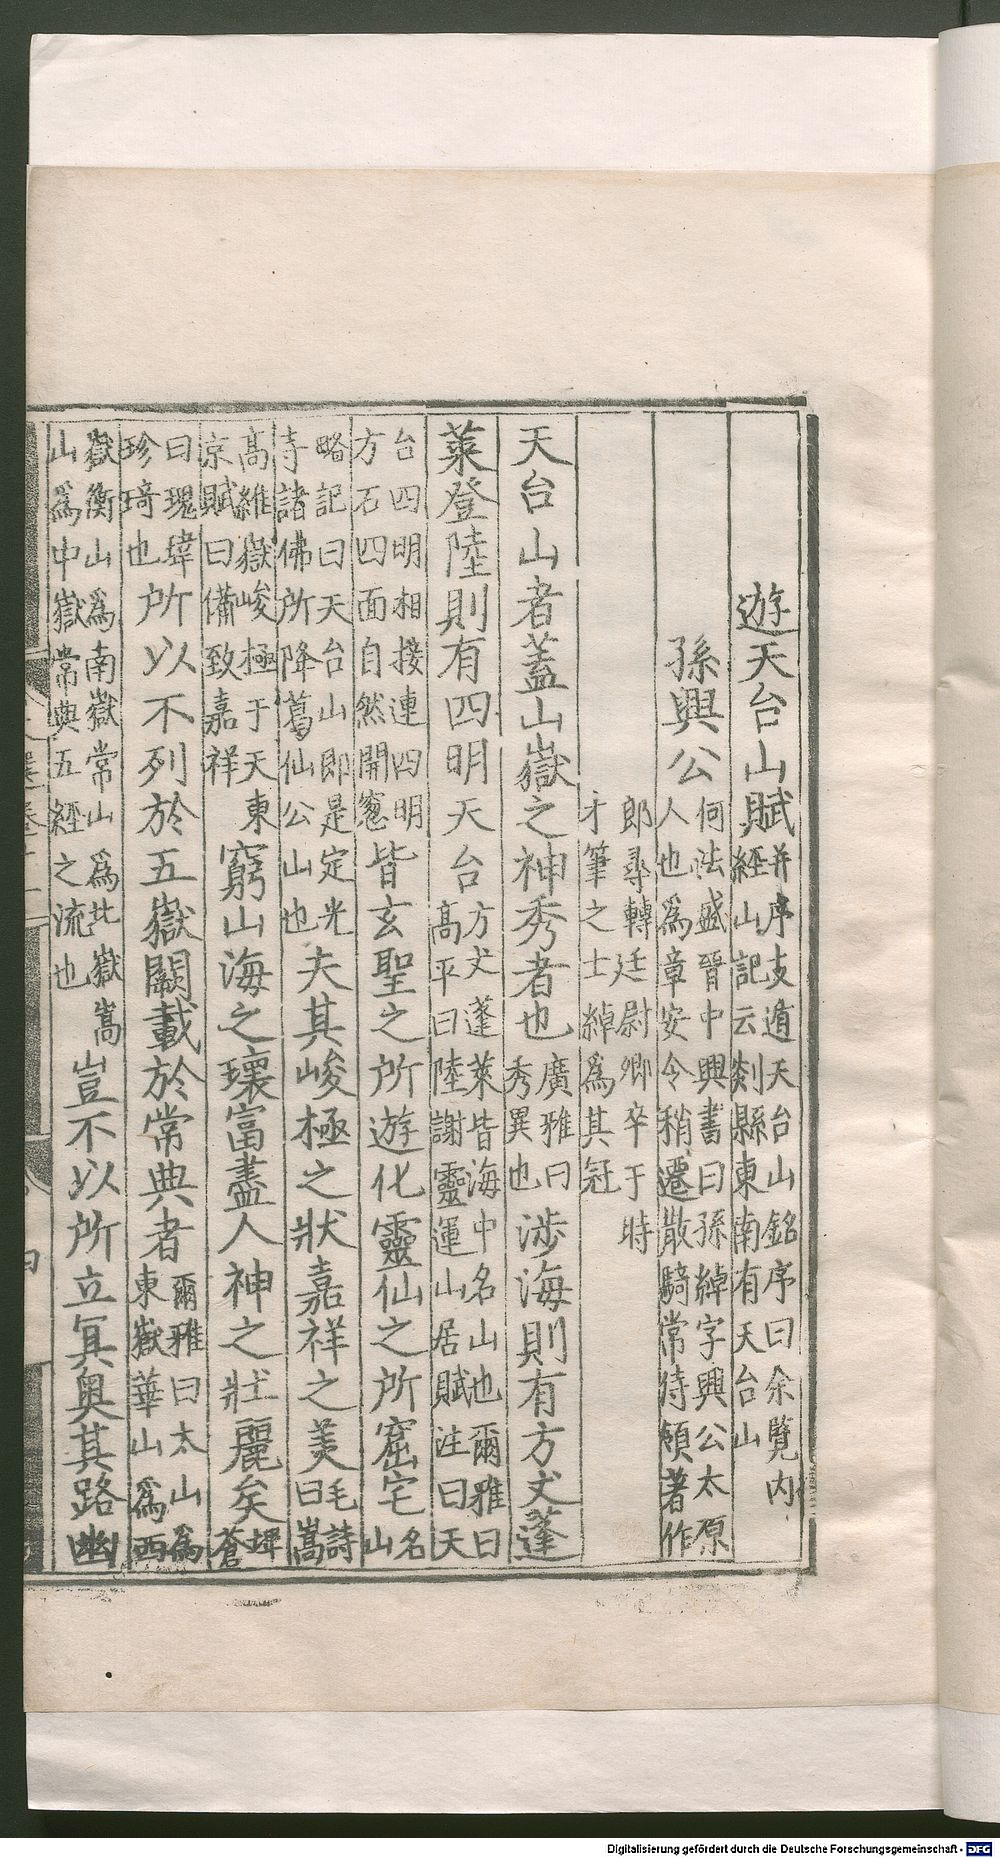 遊天台山賦并序支遁天台山銘序曰余覽内經山記云剡縣東南有天台山
孫興公何法盛晉中興書曰孫綽字興公太原人也爲章安令稍遷散騎常侍領著作
郎尋轉廷尉卿卒于時才筆之士綽爲其冠
天台山者蓋山嶽之神秀者也廣雅曰秀異也涉海則有方丈蓬
萊登陸則有四明天台方丈蓬萊皆海中名山也爾雅曰高平曰陸謝靈運山居賦注曰天
台四明相接連四明方石四面自然開窓皆玄聖之所遊化靈仙之所窟宅名山
略記曰天台山即是定光寺諸佛所降葛仙公山也夫其峻極之狀嘉祥之美毛詩曰嵩
高維嶽峻極于天東京賦曰備致嘉祥窮山海之瓌富盡人神之壯麗矣埤蒼
曰瑰瑋珍琦也所以不列於五嶽闕載於常典者爾雅曰太山爲東嶽華山爲西
嶽衡山爲南嶽常山爲北嶽嵩山爲中嶽常典五經之流也豈不以所立冥奧其路幽
Digitalisierung gefördert durch die Deutsche Forschungsgemeinschaft - DFG